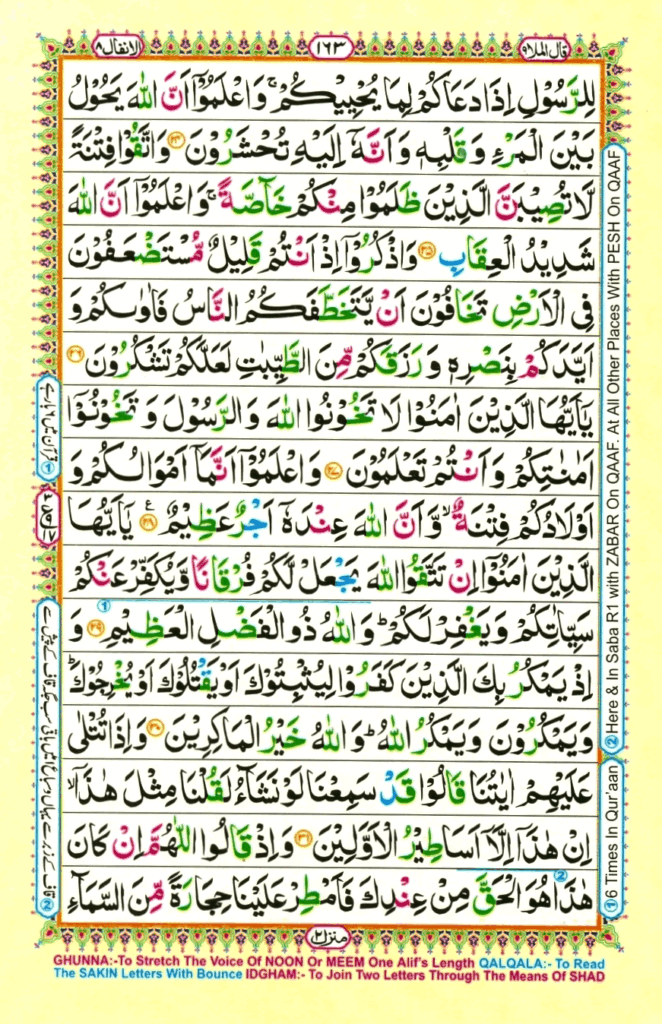 قال الملا ٩
١٦٣
الانفال ٨
لِلرَّسُوۡلِ اِذَا دَعَاكُمۡ لِمَا يُحۡيِيۡكُمۡ ۚ وَاعۡلَمُوۡۤا اَنَّ اللّٰهَ يَحُوۡلُ
بَيۡنَ الۡمَرۡءِ وَ قَلۡبِهٖ وَ اَنَّهٗۤ اِلَيۡهِ تُحۡشَرُوۡنَ ﴿۲۴﴾ وَاتَّقُوۡا فِتۡنَةً
لَّا تُصِيۡبَنَّ الَّذِيۡنَ ظَلَمُوۡا مِنۡكُمۡ خَآصَّةً ۚ وَاعۡلَمُوۡۤا اَنَّ اللّٰهَ
شَدِيۡدُ الۡعِقَابِ ﴿۲۵﴾ وَاذۡكُرُوۡۤا اِذۡ اَنۡتُمۡ قَلِيۡلٌ مُّسۡتَضۡعَفُوۡنَ
فِى الۡاَرۡضِ تَخَافُوۡنَ اَنۡ يَّتَخَطَّفَكُمُ النَّاسُ فَاٰوٰٮكُمۡ وَ
اَيَّدَكُمۡ بِنَصۡرِهٖ وَ رَزَقَكُمۡ مِّنَ الطَّيِّبٰتِ لَعَلَّكُمۡ تَشۡكُرُوۡنَ ﴿۲۶﴾
يٰۤاَيُّهَا الَّذِيۡنَ اٰمَنُوۡا لَا تَخُوۡنُوا اللّٰهَ وَ الرَّسُوۡلَ وَ تَخُوۡنُوۡۤا
اَمٰنٰتِكُمۡ وَ اَنۡتُمۡ تَعۡلَمُوۡنَ ﴿۲۷﴾ وَ اعۡلَمُوۡۤا اَنَّمَاۤ اَمۡوَالُكُمۡ وَ
اَوۡلَادُكُمۡ فِتۡنَةٌ ۙ وَّ اَنَّ اللّٰهَ عِنۡدَهٗۤ اَجۡرٌ عَظِيۡمٌ ﴿۲۸﴾ ع يٰۤاَيُّهَا
الَّذِيۡنَ اٰمَنُوۡۤا اِنۡ تَتَّقُوا اللّٰهَ يَجۡعَلْ لَّكُمۡ فُرۡقَانًا وَّ يُكَفِّرۡ عَنۡكُمۡ
سَيِّاٰتِكُمۡ وَ يَغۡفِرۡ لَكُمۡ ؕ وَ اللّٰهُ ذُو الۡفَضۡلِ الۡعَظِيۡمِ ﴿۲۹﴾ وَ
اِذۡ يَمۡكُرُ بِكَ الَّذِيۡنَ كَفَرُوۡا لِيُثۡبِتُوۡكَ اَوۡ يَقۡتُلُوۡكَ اَوۡ يُخۡرِجُوۡكَ ؕ
وَ يَمۡكُرُوۡنَ وَ يَمۡكُرُ اللّٰهُ ؕ وَ اللّٰهُ خَيۡرُ الۡمَاكِرِيۡنَ ﴿۳۰﴾ وَ اِذَا تُتۡلٰى
عَلَيۡهِمۡ اٰيٰتُنَا قَالُوۡا قَدۡ سَمِعۡنَا لَوۡ نَشَآءُ لَقُلۡنَا مِثۡلَ هٰذَاۤ ۙ
اِنۡ هٰذَاۤ اِلَّاۤ اَسَاطِيۡرُ الۡاَوَّلِيۡنَ ﴿۳۱﴾ وَ اِذۡ قَالُوا اللّٰهُمَّ اِنۡ كَانَ
هٰذَا هُوَ الۡحَقَّ مِنۡ عِنۡدِكَ فَاَمۡطِرۡ عَلَيۡنَا حِجَارَةً مِّنَ السَّمَآءِ
منزل ٢
① 6 Times In Qur'aan
② Here & In Saba R1 with ZABAR On QAAF. At All Other Places With PESH On QAAF
① قرآن میں ٦ بار ہے
GHUNNA:-To Stretch The Voice Of NOON Or MEEM One Alif's Length QALQALA:- To Read
The SAKIN Letters With Bounce IDGHAM:- To Join Two Letters Through The Means Of SHAD